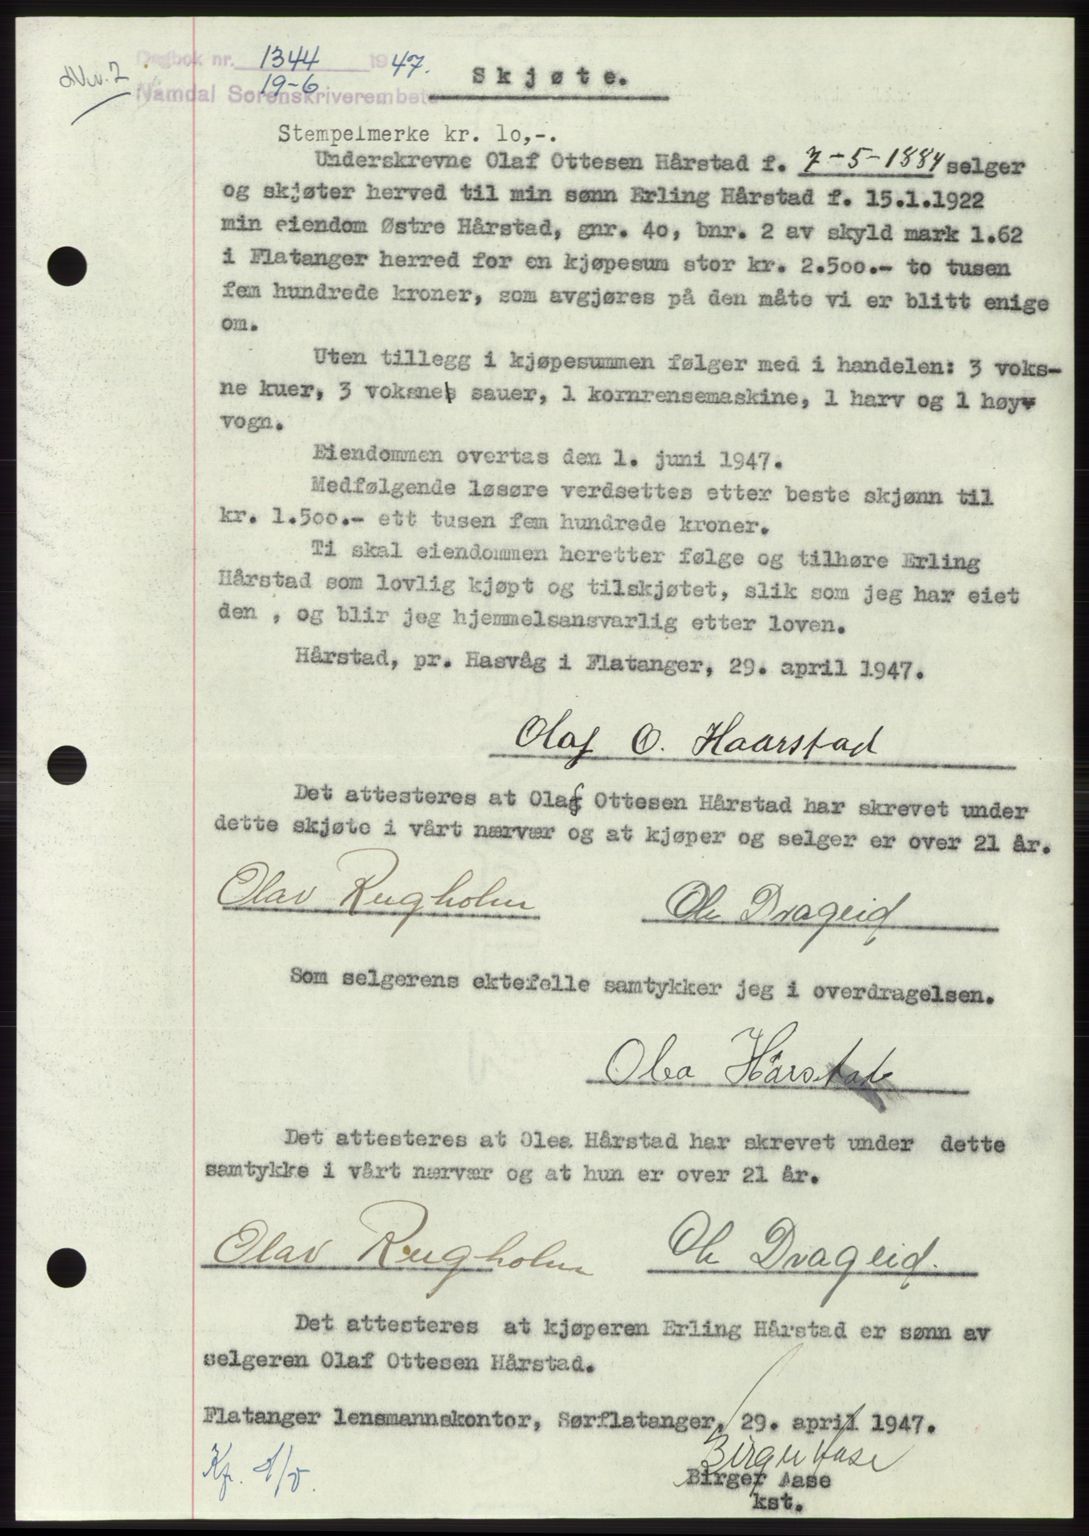 Dagbok nr. 1344 1947.
Namdal Sorenskriverembete 19-6
Skjøte.
Stempelmerke kr. 10,-.
Underskrevne Olaf Ottesen Hårstad f. 7-5-1884 selger
og skjøter herved til min sønn Erling Hårstad f. 15.1.1922
min eiendom Østre Hårstad, gnr. 40, bnr. 2 av skyld mark 1.62
i Flatanger herred for en kjøpesum stor kr. 2.500.- to tusen
fem hundrede kroner, som avgjøres på den måte vi er blitt enige
om.
Uten tillegg i kjøpesummen følger med i handelen: 3 voks-
ne kuer, 3 voksne sauer, 1 kornrensemaskine, 1 harv og 1 høy-
vogn.
Eiendommen overtas den 1. juni 1947.
Medfølgende løsøre verdsettes etter beste skjønn til
kr. 1.500.- ett tusen fem hundrede kroner.
Ti skal eiendommen heretter følge og tilhøre Erling
Hårstad som lovlig kjøpt og tilskjøtet, slik som jeg har eiet
den , og blir jeg hjemmelsansvarlig etter loven.
Hårstad, pr. Hasvåg i Flatanger, 29. april 1947.
Olaf O. Haarstad
Det attesteres at Olaf Ottesen Hårstad har skrevet under
dette skjøte i vårt nærvær og at kjøper og selger er over 21 år.
Olav Rugholm Ole Drageid
Som selgerens ektefelle samtykker jeg i overdragelsen.
Olea Hårstad
Det attesteres at Olea Hårstad har skrevet under dette
samtykke i vårt nærvær og at hun er over 21 år.
Olav Rugholm Ole Drageid.
Det attesteres at kjøperen Erling Hårstad er sønn av
selgeren Olaf Ottesen Hårstad.
Flatanger lensmannskontor, Sørflatanger, 29. april 1947.
Birger Aase
Birger Aase
kst.